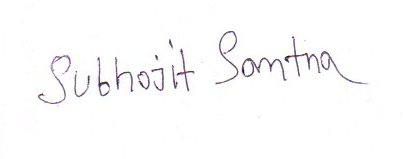 Subhojit Samtna